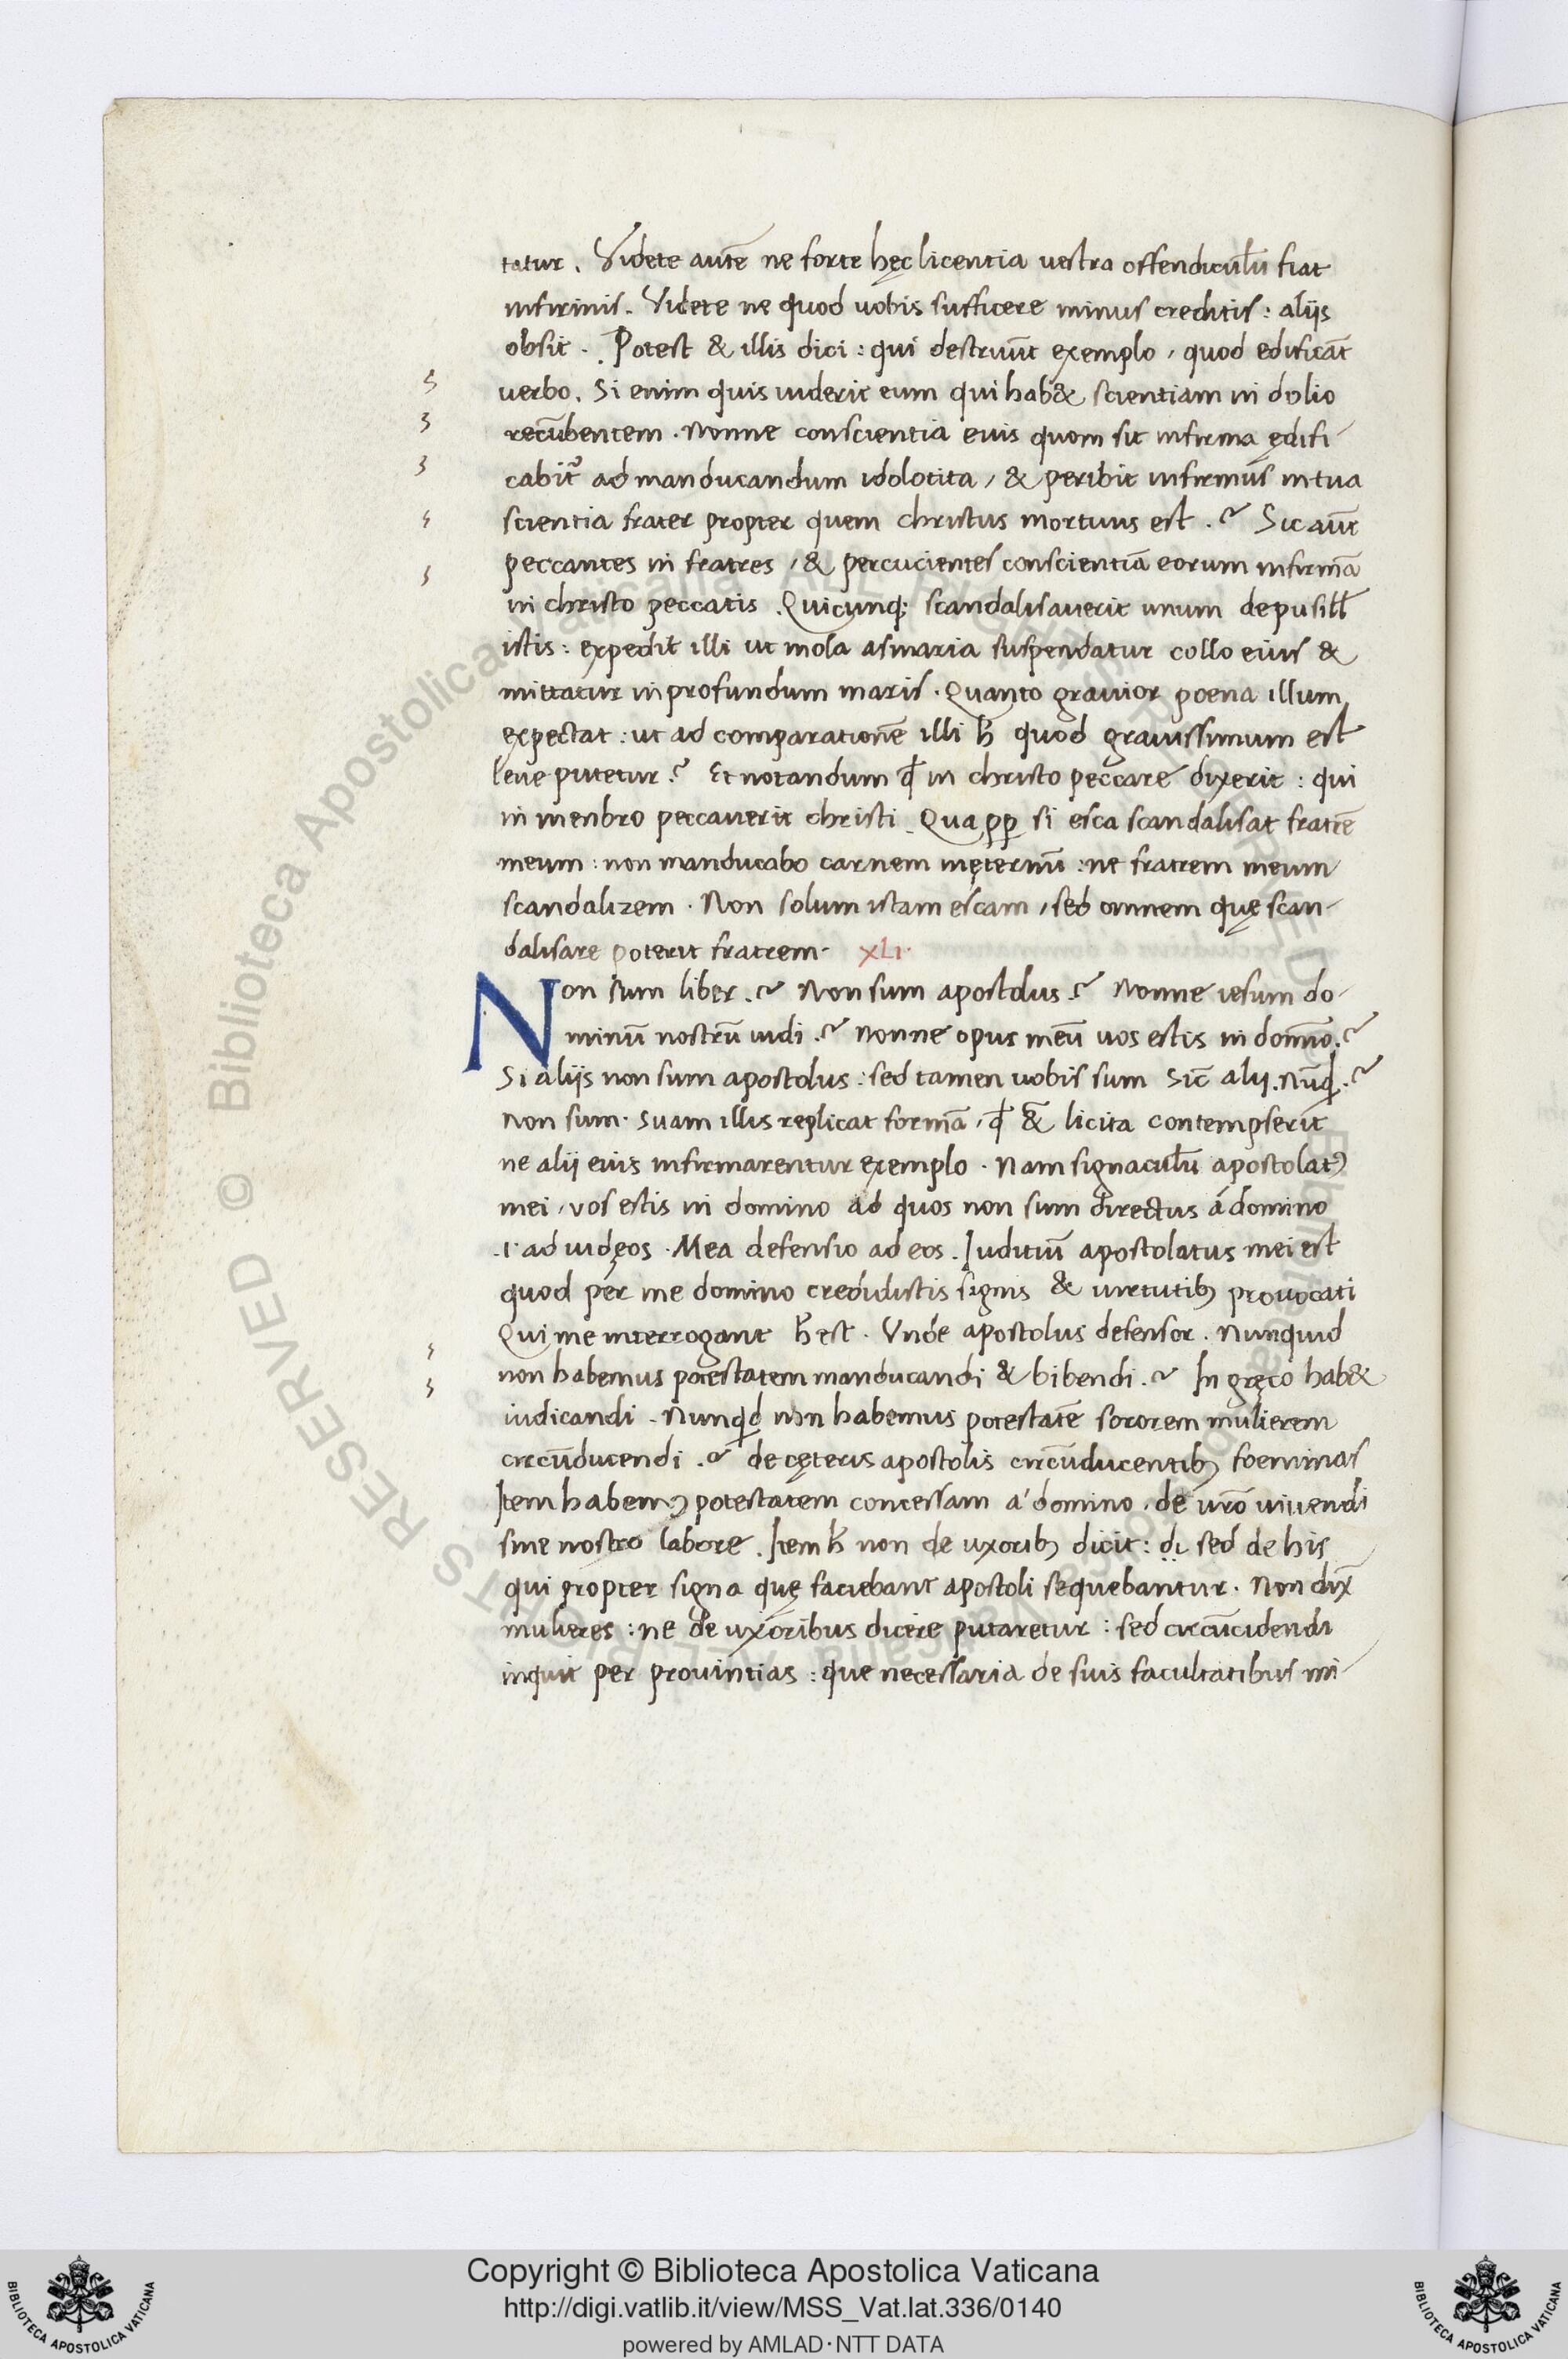 tatur. Videte autē ne forte hęc licentia uestra offendiculū fiat
infirmis. Videte ne quod uobis sufficere minus creditis: aliis
obsit. Potest & illis dici: qui destruūt exemplo, quod edificāt
uerbo. Si enim quis uiderit eum qui hab& scientiam in dolio
recūbentem. Nonne conscientia euis quom sit infirma ędifi-
cabit̃ ad manducandum idolotita, & peribit infirmus in tua
scientia frater propter quem christus mortuus est.? Sic aūt
peccantes in fratres, & percucientes conscientiā eorum infirmā
in christo peccatis. Quicunq; scandalisauerit unum de pusill̄
istis: expedit illi ut mola asinaria suspendatur collo eius &
mittatur in profundum maris. Quanto grauior poena illum
expectat: ut ad comparationē illi h̄ quod grauissimum est
leue putetur.? Et notandum ꝙ in christo peccare dixerit: qui
in menbro peccauerit christi. Qua ꝓp̄ si esca scandalisat fratrē
meum: non manducabo carnem in ęternū: ne fratrem meum
scandalizem. Non solum istam escam, sed omnem quę scan-
dalisare poterit fratrem. XLI.
Non sum liber.? Non sum apostolus.? Nonne iesum do-
minū nostrū uidi.? Nonne opus meū uos estis in domīo.?
Si aliis non sum apostolus: sed tamen uobis sum Sic̄ alii. Nūqd.?
Non sum. Suam illis replicat formā, ꝙ & licita contempserit
ne alii euis infirmarentur exemplo. Nam signaculū apostolatꝰ
mei, vos estis in domino ad quos non sum directus á domino
.i. ad iudęos. Mea defensio ad eos. Iuditiū apostolatus mei est
quod per me domino credidistis signis & uirtutibꝫ prouocati
Qui me interrogant h̄ est. Vnde apostolus defensor. Nunquid
non habemus potestatem manducandi & bibendi.? In gręco hab&
iudicandi. Nunqd non habemus potestatē sororem mulierem
circūducendi.? de cęteris apostolis circūducentibꝫ foeminas
Item habemꝰ potestatem concessam a' domino, de ur̄o uiuendi
sine nostro labore. Item h̄ non de uxoribꝫ dicit: di sed de his
qui propter signa quę faciebant apostoli sequebantur. Non dix̄
mulieres: ne de uxoribus dicere putaretur: sed circūcidendi
inquit per prouintias: que necessaria de suis facultatibus mi-
Copyright © Biblioteca Apostolica Vaticana
http://digi.vatlib.it/view/MSS_Vat.lat.336/0140
powered by AMLAD·NTT DATA